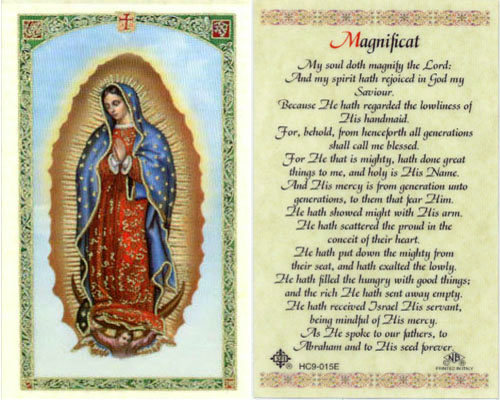 Magnificat
My soul doth magnify the Lord:
And my spirit hath rejoiced in God my
Saviour.
Because He hath regarded the lowliness of
His handmaid.
For, behold, from henceforth all generations
shall call me blessed.
For He that is mighty, hath done great
things to me, and holy is His Name.
And His mercy is from generation unto
generations, to them that fear Him.
He hath showed might with His arm.
He hath scattered the proud in the
conceit of their heart.
He hath put down the mighty from
their seat, and hath exalted the lowly.
He hath filled the hungry with good things;
and the rich He hath sent away empty.
He hath received Israel His servant,
being mindful of His mercy.
As He spoke to our fathers, to
Abraham and to His seed forever.
® HC9-015E
PRINTED IN ITALY